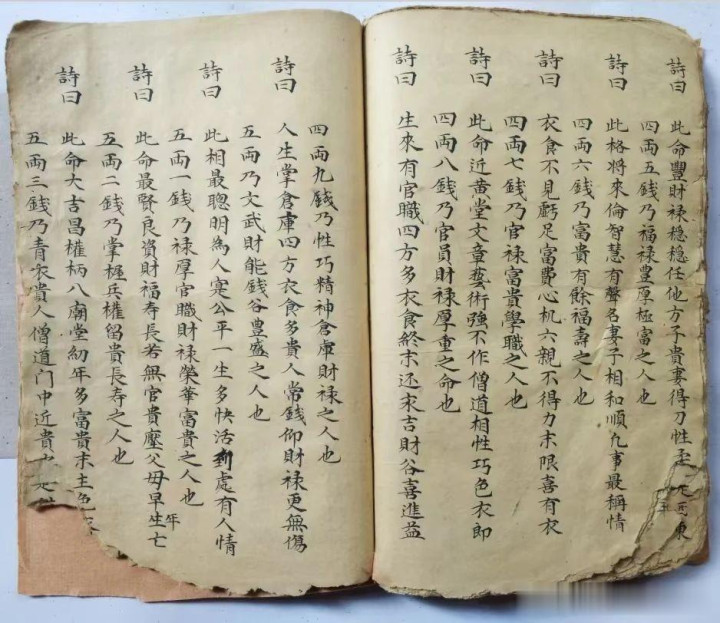 詩曰 此命豐財禄穏穏任他方子貴妻得刀性 東
四両五錢乃福禄豊厚極富之人也
詩曰 此格将來倫智慧有聲名妻子相和順九事最稱情
四両六錢乃富貴有餘福壽之人也
詩曰 衣食不見虧足富費心机六親不得力末限喜有衣
四両七錢乃官禄富貴學職之人也
詩曰 此命近黄堂文章藝術強不作僧道相性巧色衣郎
四両八錢乃官員財禄厚重之命也
詩曰 生來有官職四方多衣食終末还求吉財谷喜進益
四両九錢乃性巧精神倉庫財禄之人也
詩曰 人生掌倉庫四方衣食多貴人常錢仰財禄更無傷
五両乃文武財能錢谷豊盛之人也
詩曰 此相最聰明為人寔公平一生多快活到處有人情
五両一錢乃禄厚官職財禄榮華富貴之人也
年
詩曰 此命最賢良資財福寿長若無官貴壓父母早生亡
五両二錢乃掌握兵權留貴長寿之人也
詩曰 此命大吉昌權柄八廟堂幼年多富貴末土色
五両三錢乃青衣貴人僧道门中近貴